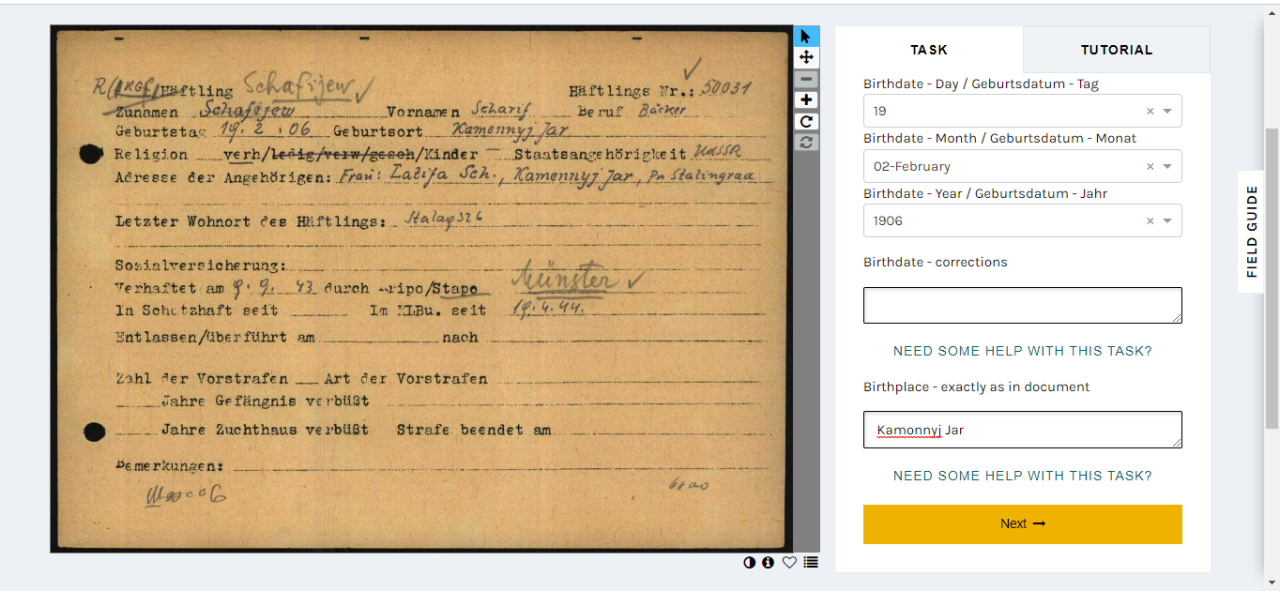 TASK
TUTORIAL
R/(KGf/Häftling Schafijew ✓
Häftlings Nr.: 50031
Zunamen Schafijew Vornamen Scharif Beruf Bäcker
Geburtstag 19. 2. 06 Geburtsort Kamennyj Jar
Religion verh/ledig/verw/gesch/Kinder — Staatsangehörigkeit UdSSR
Adresse der Angehörigen: Frau: Latifa Sch., Kamennyj Jar, Pn Stalingrad
Letzter Wohnort des Häftlings: Stalag 326
Sozialversicherung:
Verhaftet am 9. 9. 43 durch Kripo/Stapo Münster ✓
In Schutzhaft seit Im KLBu. seit 19.4.44.
Entlassen/überführt am nach
Zahl der Vorstrafen Art der Vorstrafen
Jahre Gefängnis verbüßt
Jahre Zuchthaus verbüßt Strafe beendet am
Bemerkungen:
Birthdate - Day / Geburtsdatum - Tag
19
Birthdate - Month / Geburtsdatum - Monat
02-February
Birthdate - Year / Geburtsdatum - Jahr
1906
Birthdate - corrections
NEED SOME HELP WITH THIS TASK?
Birthplace - exactly as in document
Kamonnyj Jar
NEED SOME HELP WITH THIS TASK?
Next →
FIELD GUIDE